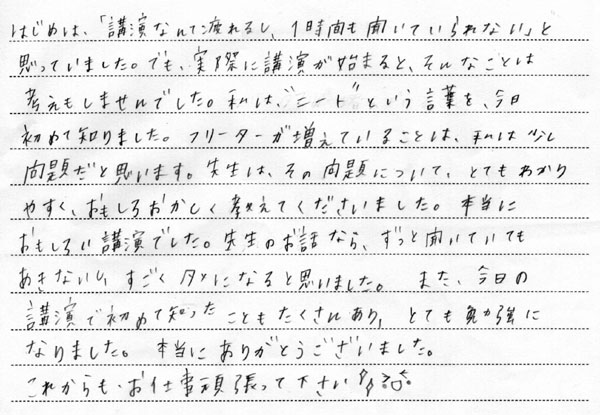 はじめは、「講演なんて疲れるし、1時間も聞いていられない」と
思っていました。でも、実際に講演が始まると、そんなことは
考えもしませんでした。私は、"ニート"という言葉を、今日
初めて知りました。フリーターが増えていることは、私は少し
問題だと思います。先生は、その問題について、とてもわかり
やすく、おもしろおかしく教えてくださいました。本当に
おもしろい講演でした。先生のお話なら、ずっと聞いていても
あきないし、すごくタメになると思いました。また、今日の
講演で初めて知ったこともたくさんあり、とても勉強に
なりました。本当にありがとうございました。
これからも、お仕事頑張って下さい